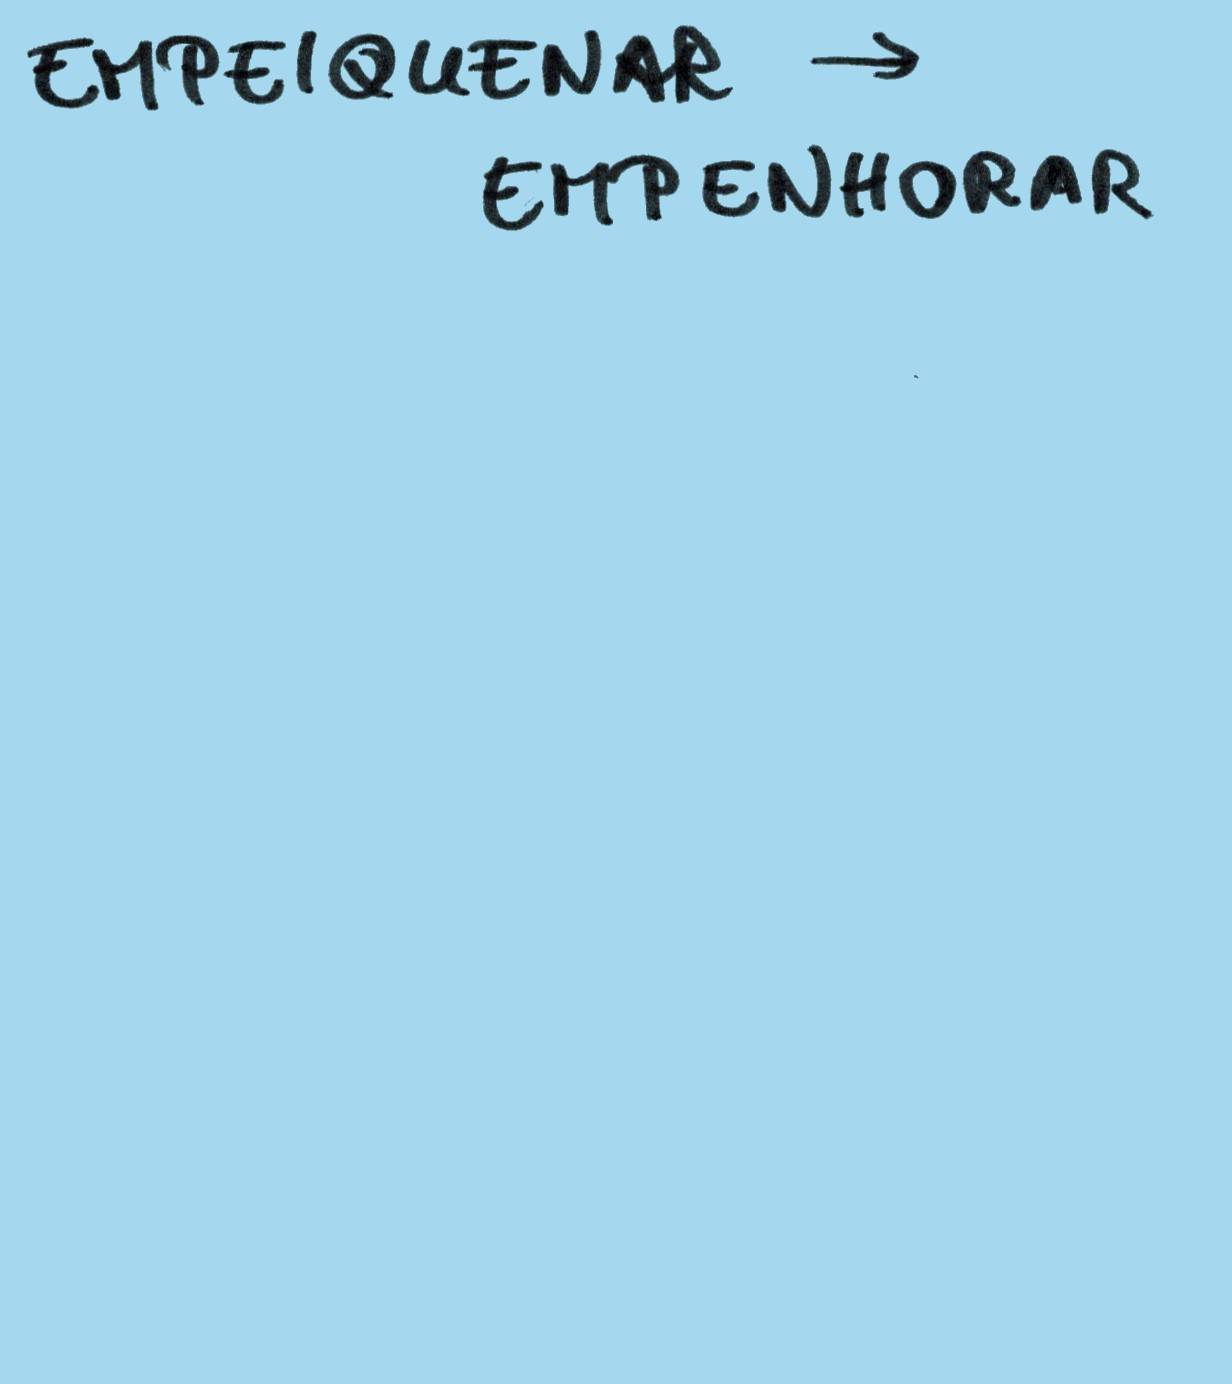 EMPEIQUENAR →
EMPENHORAR